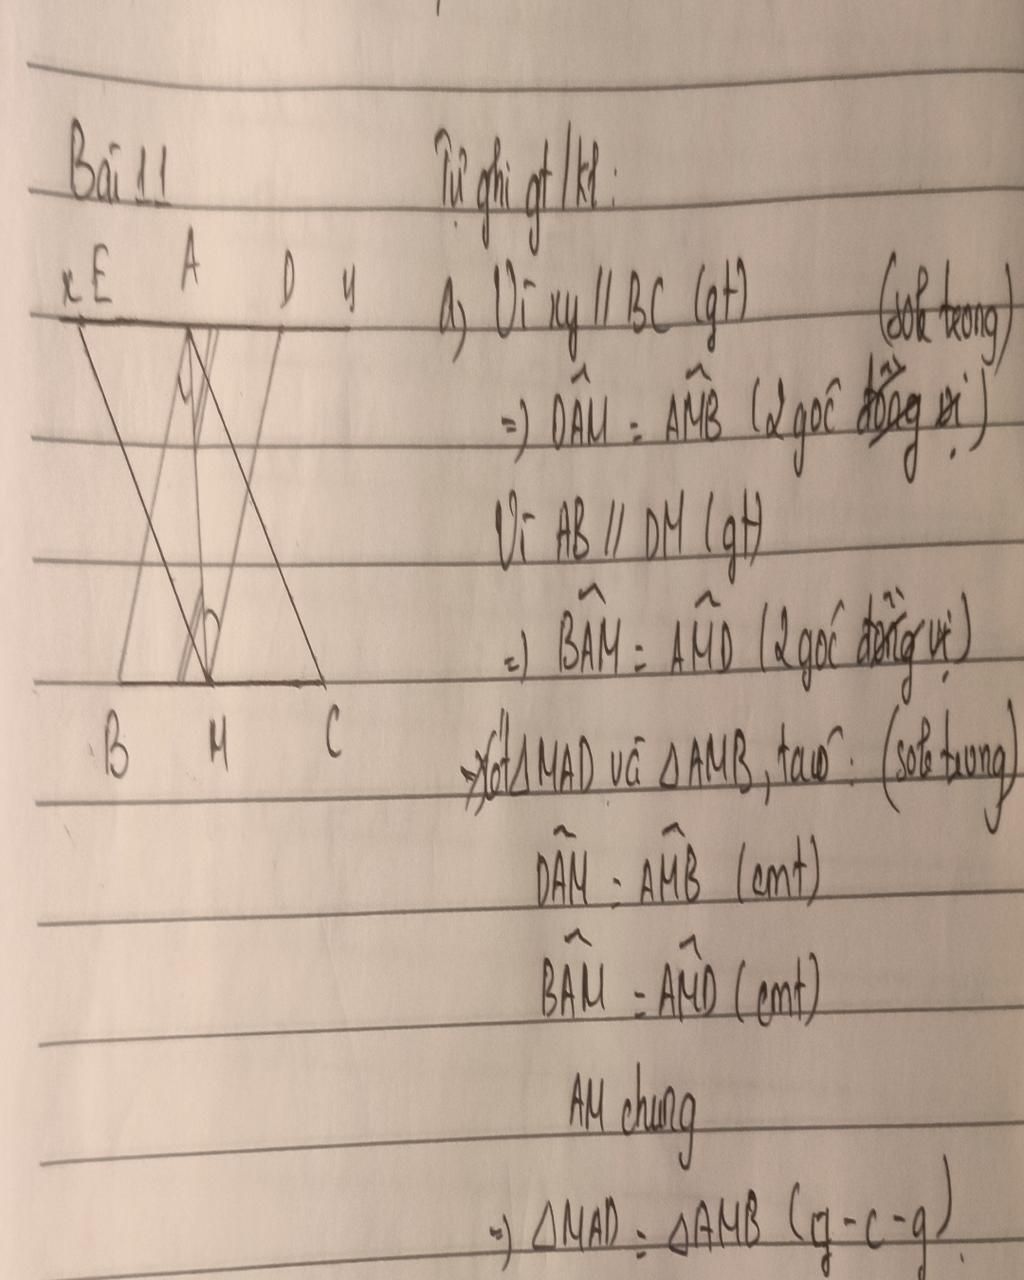 Bài 11
Tự ghi gt/kl:
x E A D y
a) Vì xy // BC (gt) (sole trong)
=) DÂM = AM̂B (2 góc đồng vị)
Vì AB // DM (gt)
=) BÂM = AM̂D (2 góc đồng vị)
B M C
Xét ΔMAD và ΔAMB, ta có: (sole trong)
DÂM = AM̂B (cmt)
BÂM = AM̂D (cmt)
AM chung
=) ΔMAD = ΔAMB (g-c-g).